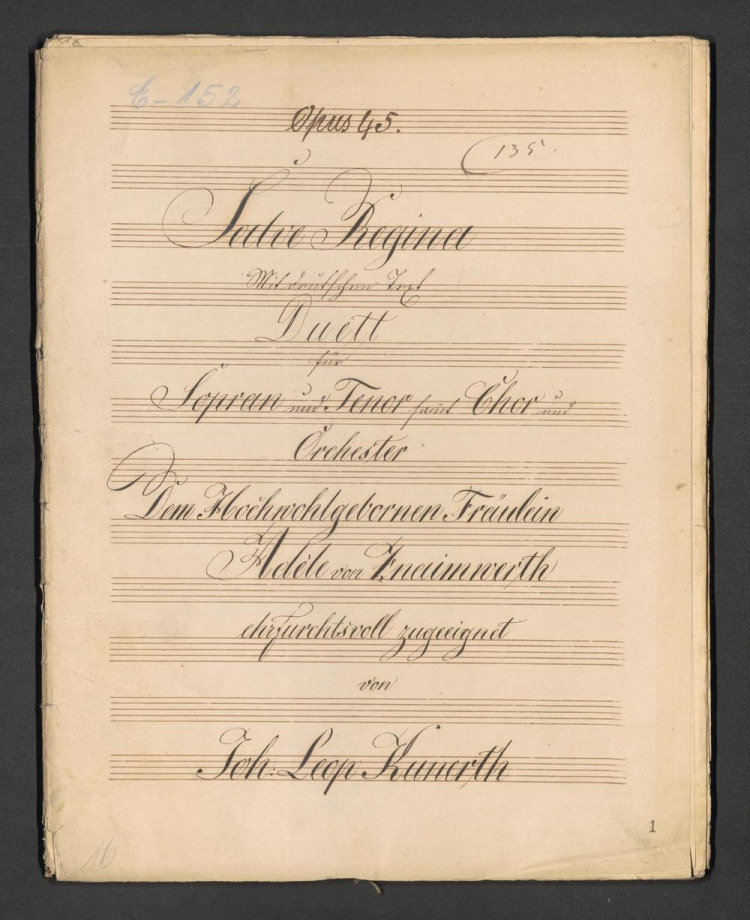 E-152
Opus 45.
135.
Salve Regina
Mit deutschen Text
Duett
für
Sopran und Tenor samt Chor und
Orchester
Dem Hochwohlgebornen Fräulein
Adèle von Znaimwerth
ehrfurchtsvoll zugeeignet
von
Joh: Leop Kunerth
1
16